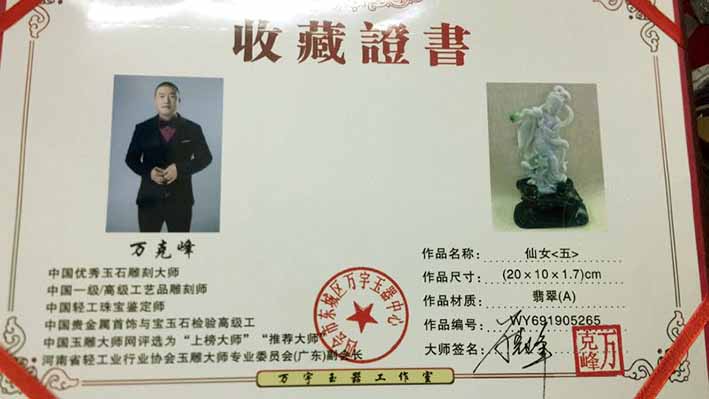 收藏證書
万克峰
中国优秀玉石雕刻大师
中国一级/高级工艺品雕刻师
中国轻工珠宝鉴定师
中国贵金属首饰与宝玉石检验高级工
中国玉雕大师网评选为“上榜大师”“推荐大师”
河南省轻工业行业协会玉雕大师专业委员会(广东)副会长
作品名称: 仙女<五>
作品尺寸: (20×10×1.7)cm
作品材质: 翡翠(A)
作品编号: WY691905265
大师签名:
万克峰
会市东城区万宇玉器中心
万宇玉器工作室